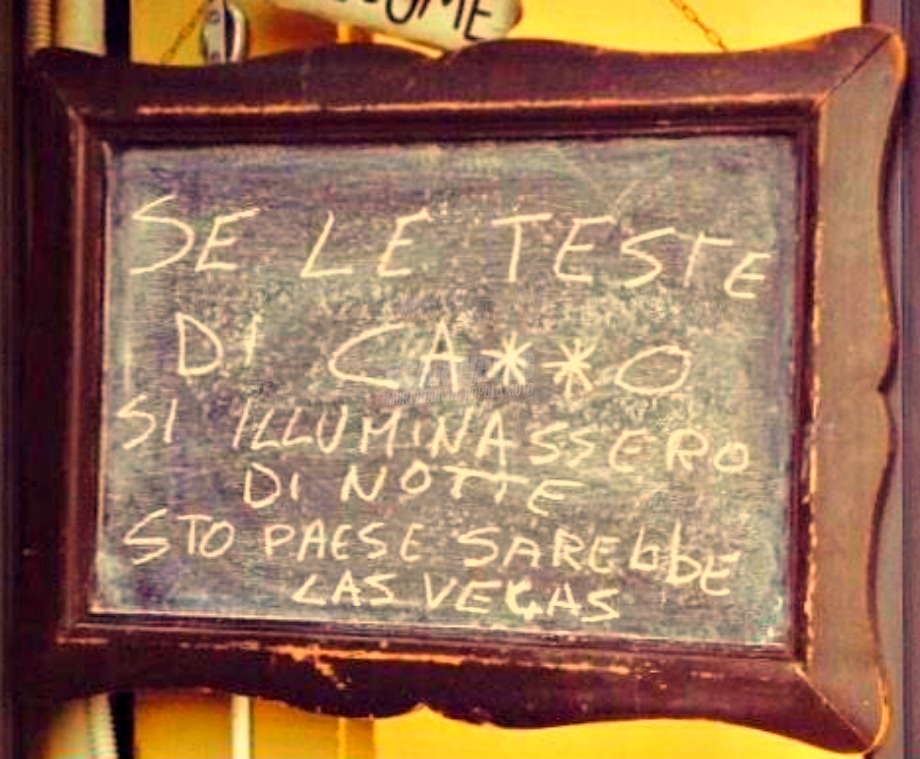 OME
SE LE TESTE
DI CA**O
SI ILLUMINASSERO
DI NOTTE
STO PAESE SAREbbE
LAS VEGAS